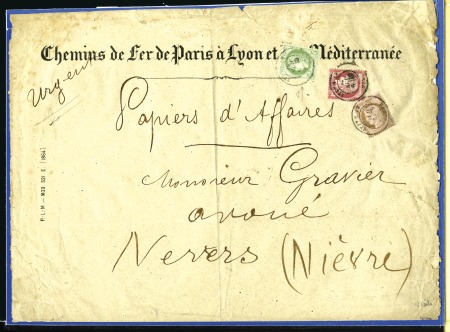 Chemins de Fer de Paris à Lyon et Méditerranée
Urgent
Papiers d'Affaires
Monsieur Gravier
avoué
Nevers (Nièvre)